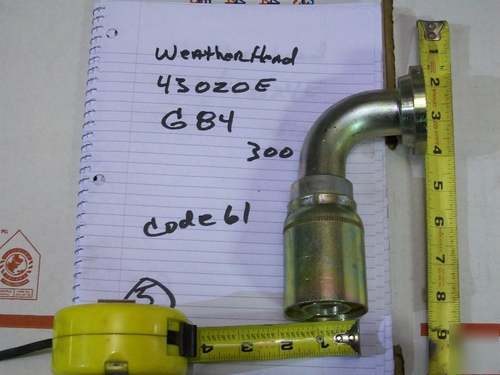 Weatherhead
43020E
G84
300
Code 61
5
1 2 3 4 5 6 7 8 9
4 3 2 1